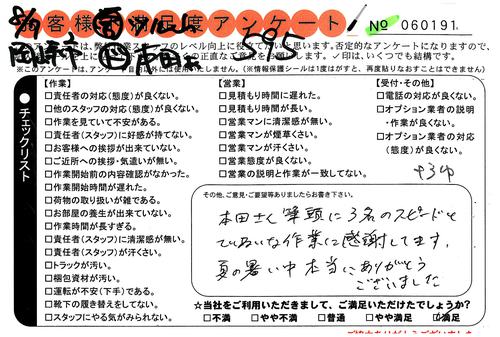 お客様満足度アンケート
№ 060191
8/9
岡崎市
本田
595
良のアンケートは、弊社営業スタッフのレベル向上に役立てたいと思います。否定的なアンケートになりますので、
正直なご意見をお聞かせします。✓印は、いくつでも結構です。
※このアンケートは、アンケート目的以外には使用いたしません。(※情報保護シールは1度はがすと、再度貼りなおすことはできません)
チェックリスト
【作業】
□責任者の対応(態度)が良くない。
□他のスタッフの対応(態度)が良くない。
□作業を見ていて不安がある。
□責任者(スタッフ)に好感が持てない。
□お客様への挨拶が出来ていない。
□ご近所への挨拶・気遣いが無い。
□作業開始前の内容確認がなかった。
□作業開始時間が遅れた。
□荷物の取り扱いが雑である。
□お部屋の養生が出来ていない。
□作業時間が長すぎる。
□責任者(スタッフ)に清潔感が無い。
□責任者(スタッフ)が汗くさい。
□トラックが汚い。
□梱包資材が汚い。
□運転が不安(下手)である。
□靴下の履き替えをしてない。
□スタッフにやる気がみられない。
【営業】
□見積もり時間に遅れた。
□見積もり時間が長い。
□営業マンに清潔感が無い。
□営業マンが煙草くさい。
□営業マンが汗くさい。
□営業態度が良くない。
□営業の説明と作業が一致してない。
【受付・その他】
□電話の対応が良くない。
□オプション業者の説明
・作業が良くない。
□オプション業者の対応
(態度)が良くない。
その他、ご意見・ご要望等ありましたらお書き下さい。
本田さん筆頭に3名のスピードと
ていねいな作業に感謝してます。
夏の暑い中本当にありがとう
ございました
☆当社をご利用いただきまして、ご満足いただけたでしょうか?
□不満 □やや不満 □普通 □やや満足 ☑満足